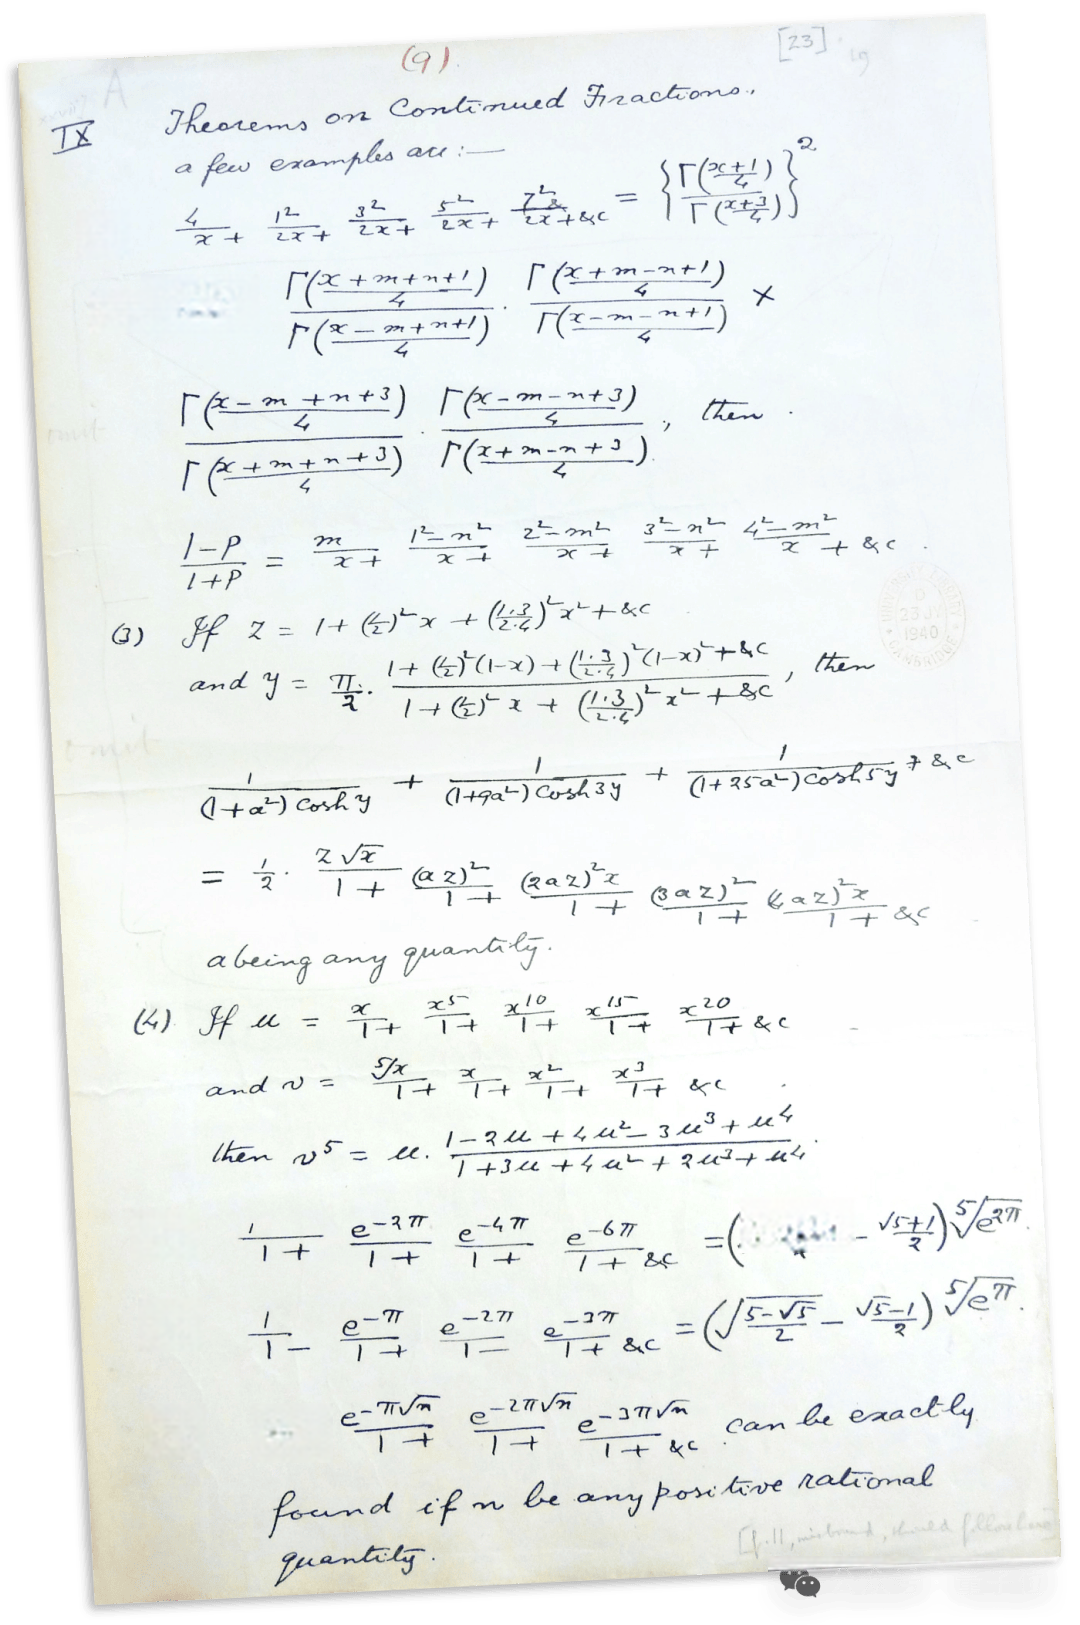 (9).
[23]
IX
Theorems on Continued Fractions.
a few examples are:—
4/x + 1²/2x + 3²/2x + 5²/2x + 7²/2x + &c = {Γ((x+1)/4) / Γ((x+3)/4)}²
Γ((x+m+n+1)/4) / Γ((x-m+n+1)/4) · Γ((x+m-n+1)/4) / Γ((x-m-n+1)/4) ×
Γ((x-m+n+3)/4) / Γ((x+m+n+3)/4) · Γ((x-m-n+3)/4) / Γ((x+m-n+3)/4), then
(1-P)/(1+P) = m/x + (1²-n²)/x + (2²-m²)/x + (3²-n²)/x + (4²-m²)/x + &c.
(3) If z = 1 + (1/2)²x + (1·3/2·4)²x² + &c
and y = π/2 · (1 + (1/2)²(1-x) + (1·3/2·4)²(1-x)² + &c) / (1 + (1/2)²x + (1·3/2·4)²x² + &c), then
1/((1+a²)cosh y) + 1/((1+9a²)cosh 3y) + 1/((1+25a²)cosh 5y) + &c
= 1/2 · z√x/1 + (az)²/1 + (2az)²x/1 + (3az)²/1 + (4az)²x/1 + &c
a being any quantity.
(4) If u = x/1 + x⁵/1 + x¹⁰/1 + x¹⁵/1 + x²⁰/1 + &c
and v = ⁵√x/1 + x/1 + x²/1 + x³/1 + &c
then v⁵ = u · (1-2u+4u²-3u³+u⁴)/(1+3u+4u²+2u³+u⁴).
1/1 + e^(-2π)/1 + e^(-4π)/1 + e^(-6π)/1 + &c = ( - (√5+1)/2) ⁵√(e^(2π)).
1/1 - e^(-π)/1 + e^(-2π)/1 - e^(-3π)/1 + &c = (√((5-√5)/2) - (√5-1)/2) ⁵√(e^π).
e^(-π√n)/1 + e^(-2π√n)/1 + e^(-3π√n)/1 + &c can be exactly
found if n be any positive rational
quantity.
UNIVERSITY LIBRARY
23 JY
1940
CAMBRIDGE
[f. 11, misbound, should follow here]